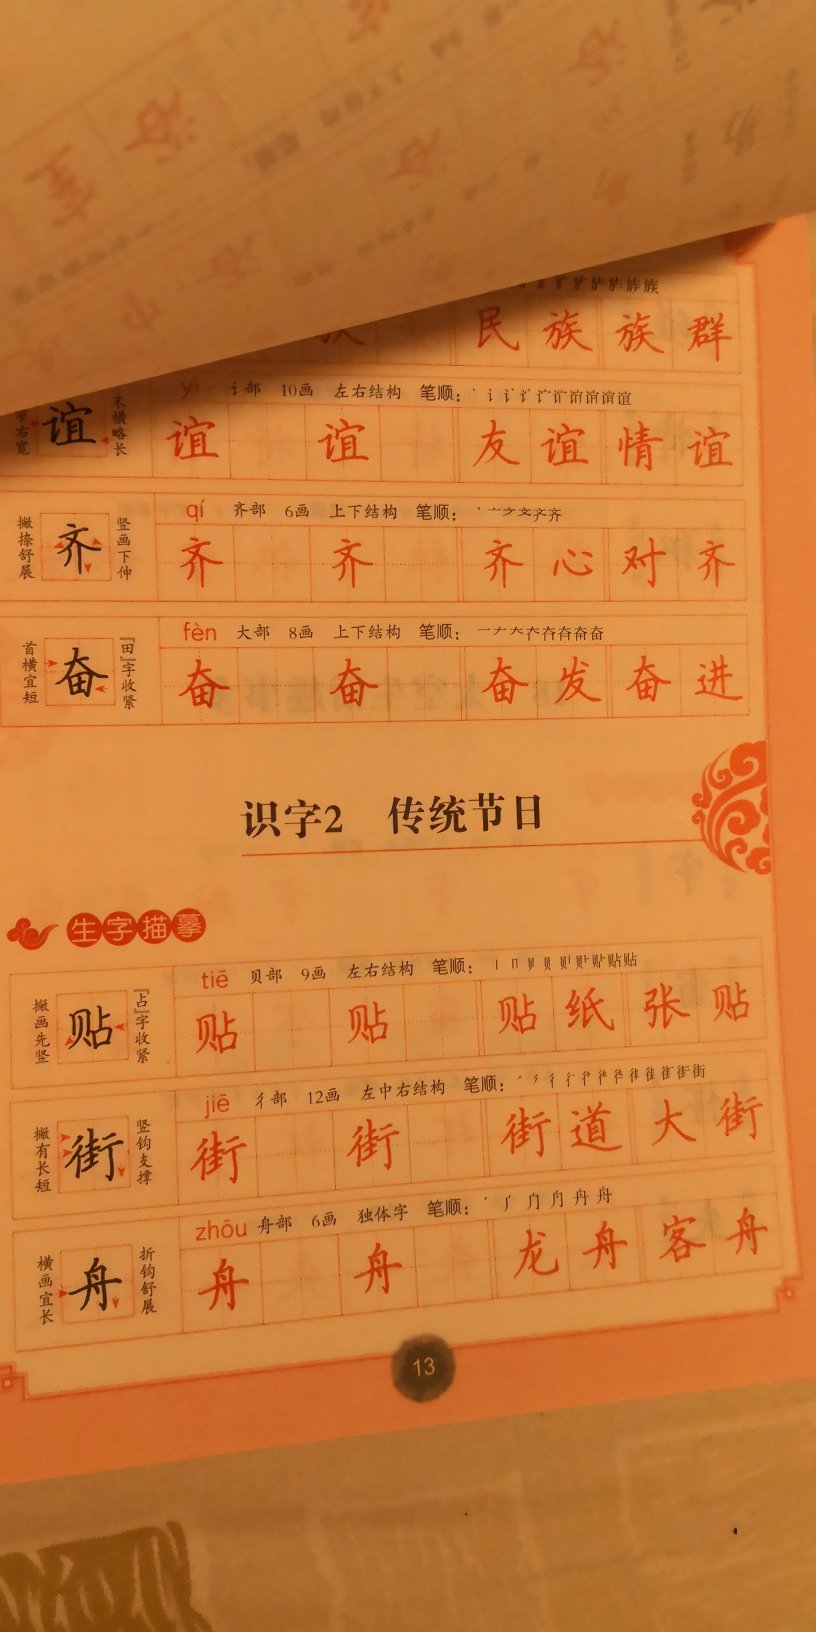 族族
民族 族群
yì 讠部 10画 左右结构 笔顺:
谊 末横略长
谊 谊 友谊 情谊
qí 齐部 6画 上下结构 笔顺:
撇捺舒展 齐 竖画下伸
齐 齐 齐心 对齐
fèn 大部 8画 上下结构 笔顺:
首横宜短 奋 『田』字收紧
奋 奋 奋发 奋进
识字2 传统节日
生字描摹
tiē 贝部 9画 左右结构 笔顺:
撇画先竖 贴 『占』字收紧
贴 贴 贴纸 张贴
jiē 彳部 12画 左中右结构 笔顺:
撇有长短 街 竖钩支撑
街 街 街道 大街
zhōu 舟部 6画 独体字 笔顺:
横画宜长 舟 折钩舒展
舟 舟 龙舟 客舟
13